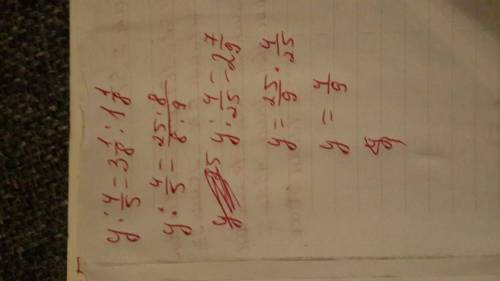 y : 4/5 = 3 1/8 : 1 1/8
y : 4/5 = 25 · 8 / 8 · 9
y : 4/25 = 2 7/9
y = 25/9 · 4/25
y = 4/9